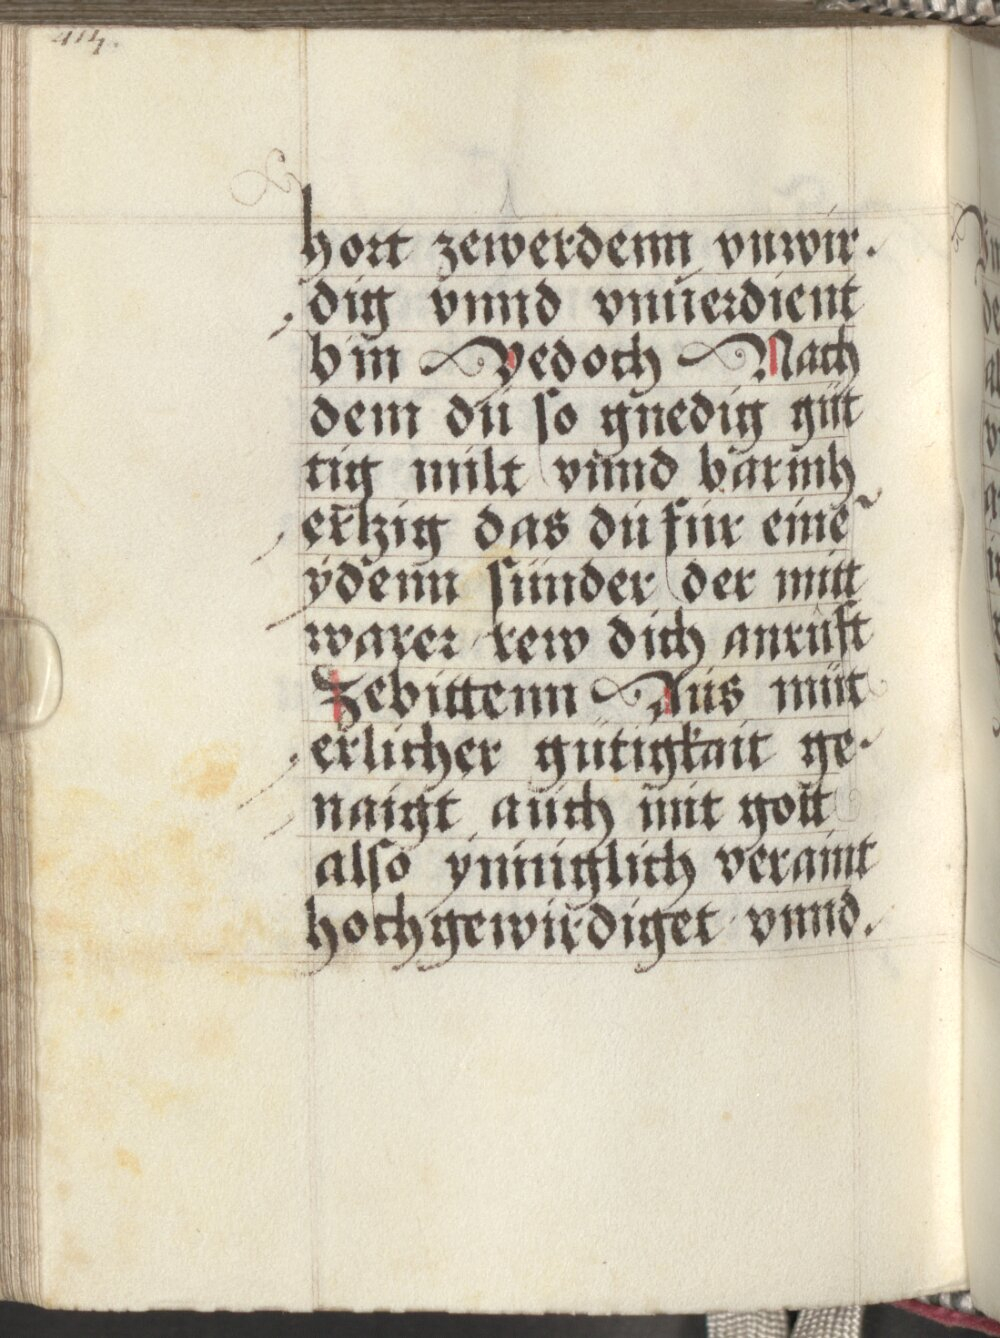 414.
hort zewerdenn vnwir-
dig vnnd vnuerdient
bin Yedoch Nach
dem du so gnedig güt
tig milt vnnd barmh
ertzig das du für eine
ydenn sünder der mitt
warer rew dich anrüft
Zebittenn Aus müt
erlicher gütigkait ge-
naigt auch mit gott
also ynniglich veraint
hochgewirdiget vnnd.